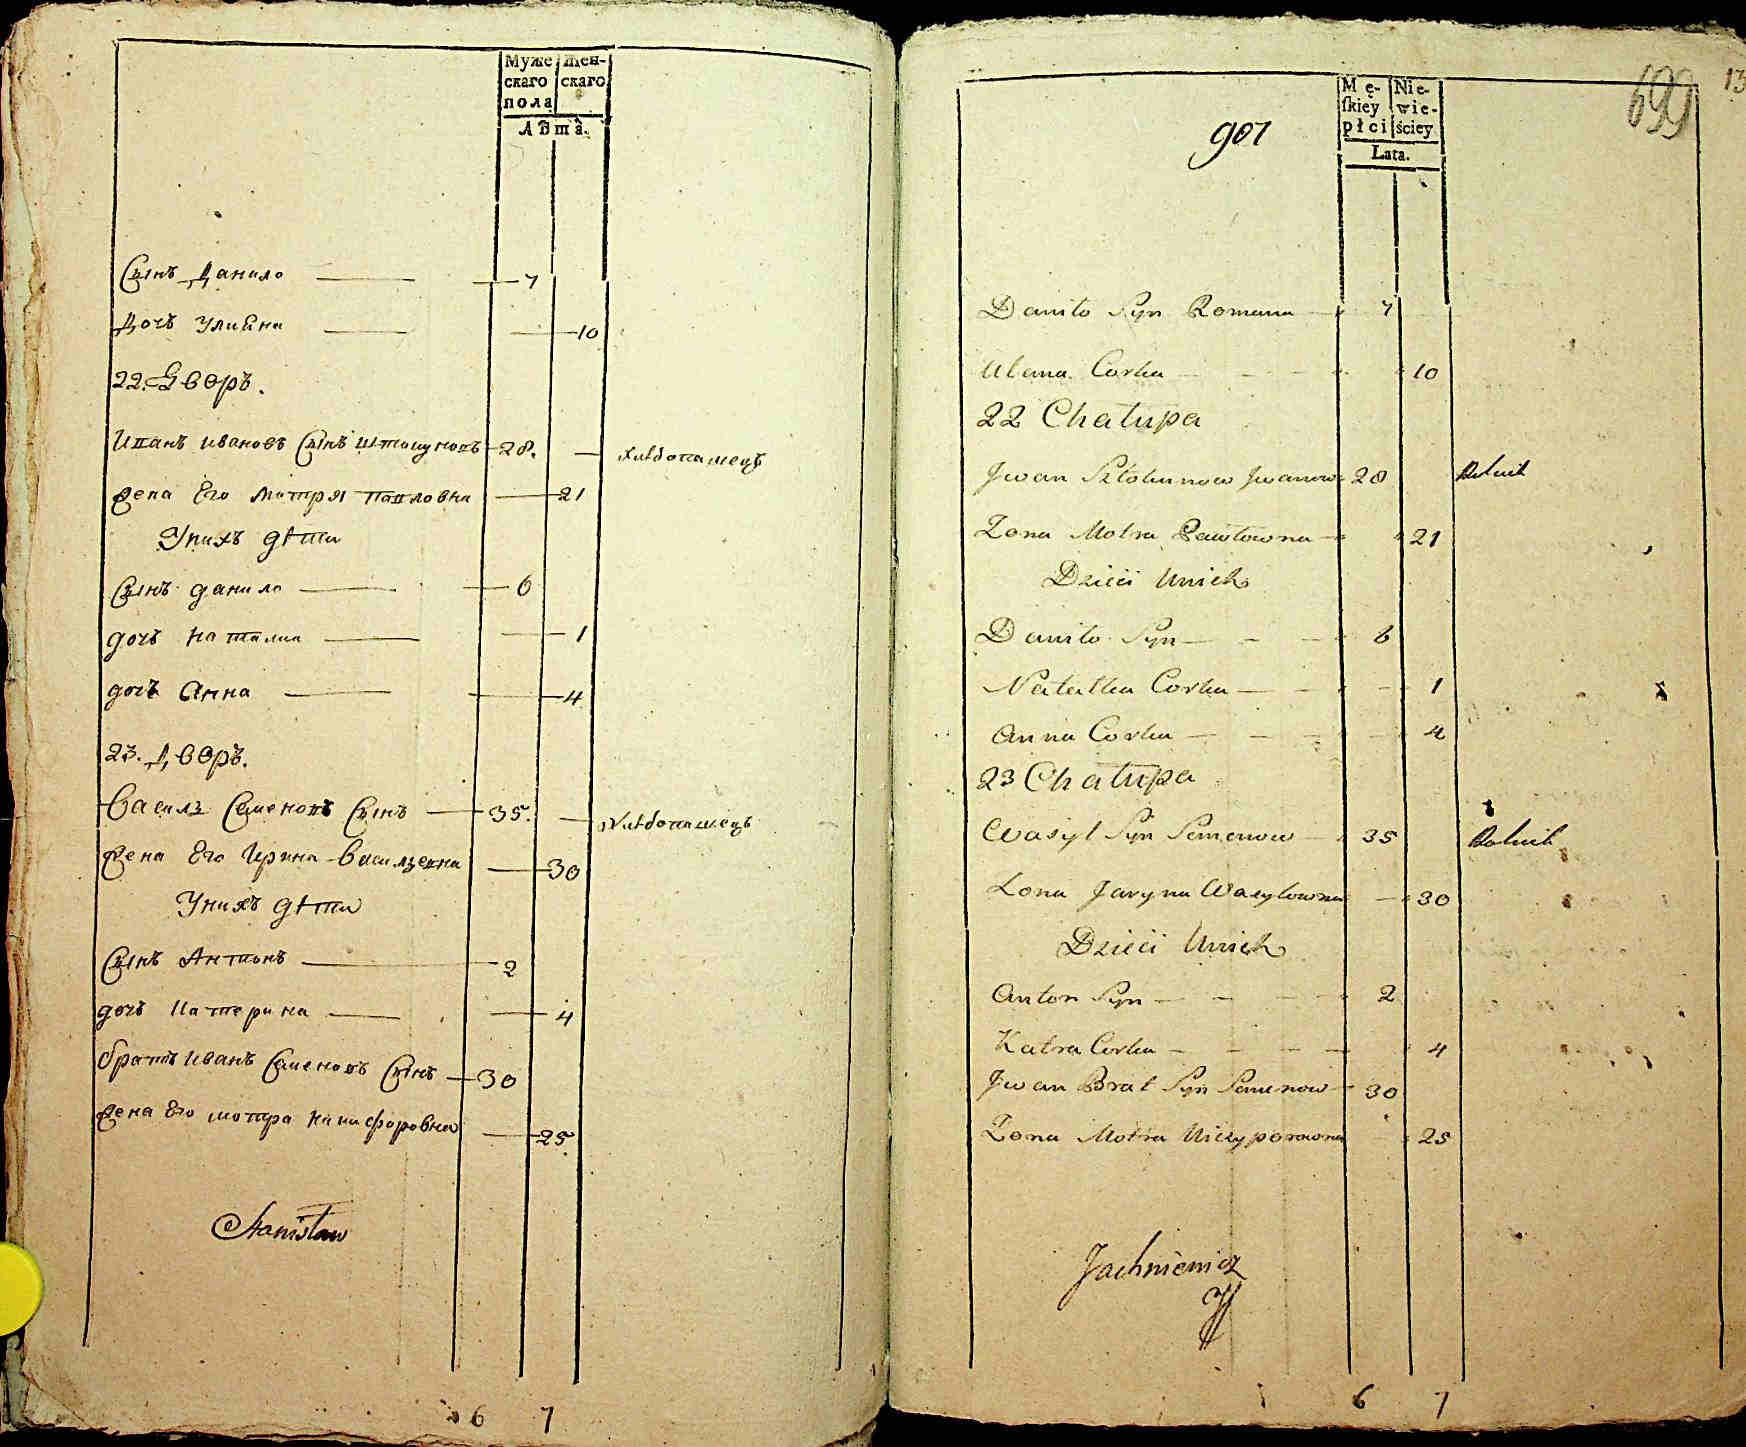 Муже
скаго
пола
Жен-
скаго
Лѣта.
Сынъ Данило 7
Дочь Улияна 10
22. Дворъ.
Иванъ Ивановъ Сынъ Штокуновъ 28. хлѣбопашецъ
Жена Его Мотря Павловна 21
У нихъ дѣти
Сынъ Данило 6
дочь Наталия 1
дочь Анна 4
23. Дворъ.
Василь Семеновъ Сынъ 35. хлѣбопашецъ
Жена Его Ирина Васильевна 30
У нихъ дѣти
Сынъ Антонъ 2
дочь Катерина 4
братъ Иванъ Семеновъ Сынъ 30
Жена Его Мотра Никифоровна 25.
Stanisław
6 7
699
13
901
Mę-
ſkiey
płci
Nie-
wie-
ściey
Lata.
Daniło Syn Romana 7
Ulana Corka 10
22 Chałupa
Jwan Sztokunow Jwanow 28 Rolnik
Żona Motra Pawłowna 21
Dzieci Unich
Daniło Syn 6
Natalka Corka 1
Anna Corka 4
23 Chałupa
Wasyl Syn Semenow 35 Rolnik
Żona Jaryna Wasylowna 30
Dzieci Unich
Anton Syn 2
Katra Corka 4
Jwan Brat Syn Semenow 30
Żona Motra Niczyporowna 25
Jachniewicz
6 7